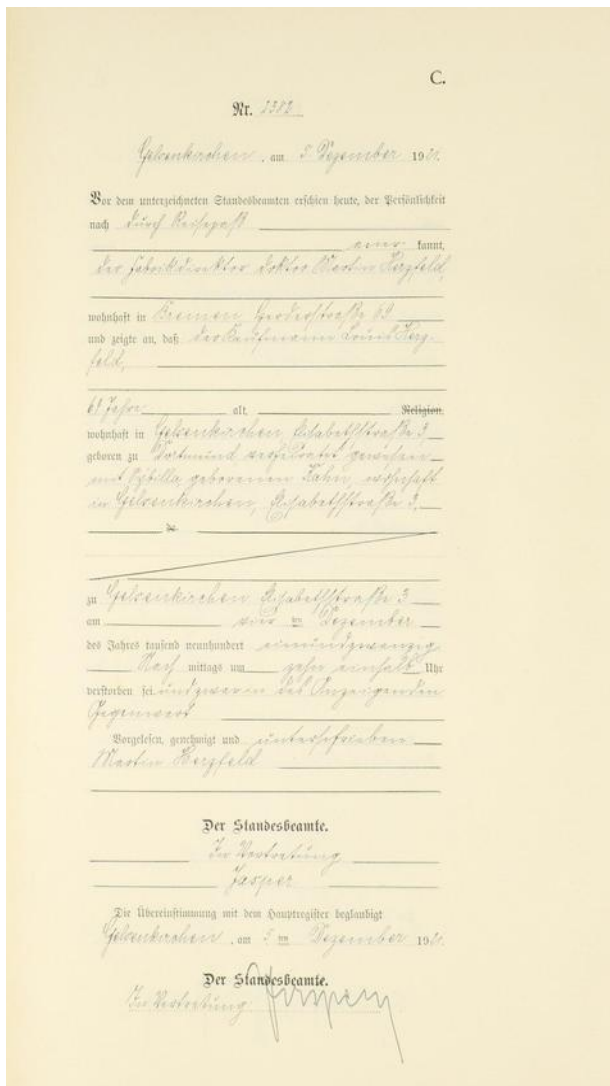 C.
Nr. 1382
Gelsenkirchen, am 5 Dezember 1921.
Vor dem unterzeichneten Standesbeamten erschien heute, der Persönlichkeit
nach durch Reisepaß
aner kannt,
der Fabrikdirektor Doktor Martin Herzfeld,
wohnhaft in Bremen Herderstraße 69
und zeigte an, daß der Kaufmann Louis Herz-
feld,
Jahre alt, Religion,
wohnhaft in Gelsenkirchen, Elisabethstraße 3
geboren zu Dortmund verheiratet gewesen
mit Sybilla geborenen Kahn, wohnhaft
in Gelsenkirchen, Elisabethstraße 3,
de
zu Gelsenkirchen Elisabethstraße 3
am vier ten Dezember
des Jahres tausend neunhundert einundzwanzig
Nach mittags um zehn einhalb Uhr
verstorben sei und zwar in des Anzeigenden
Gegenwart
Vorgelesen, genehmigt und unterschrieben
Martin Herzfeld
Der Standesbeamte.
In Vertretung
Jasper
Die Übereinstimmung mit dem Hauptregister beglaubigt
Gelsenkirchen, am 5 ten Dezember 1921.
Der Standesbeamte.
In Vertretung Jasper